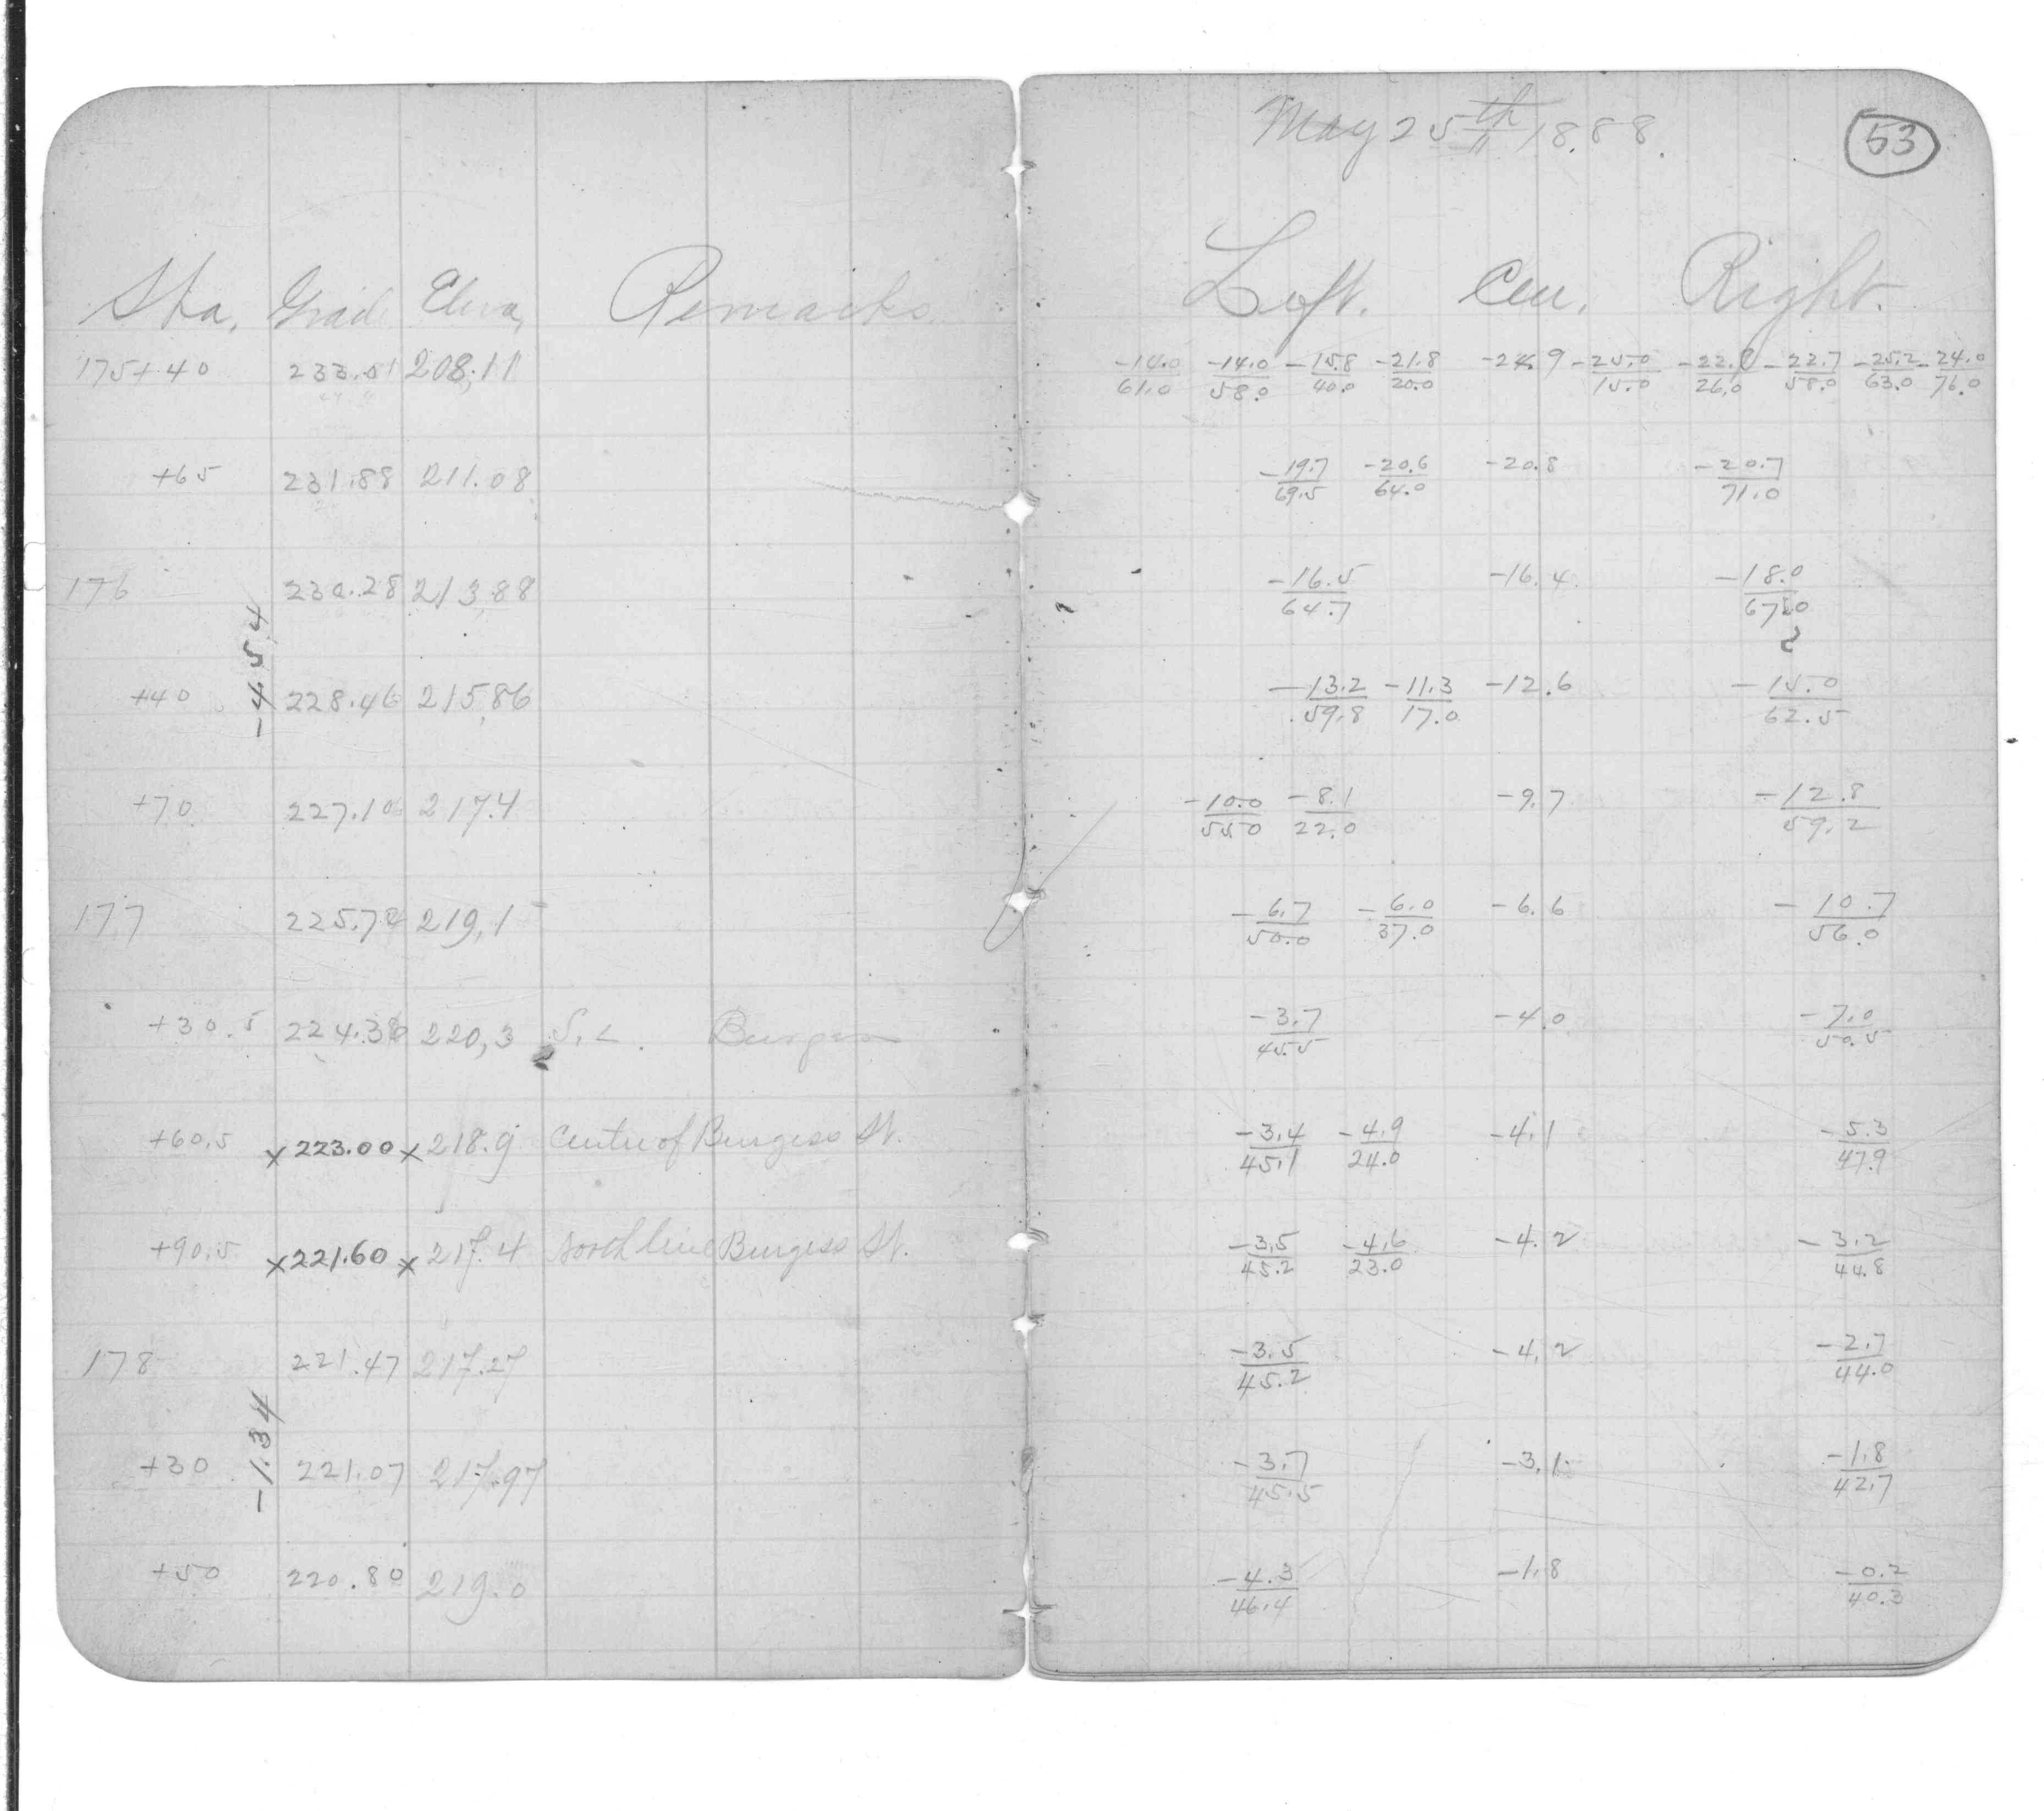 May 25th 1888.
53
Sta. Grade Eleva, Remarks Left. Cen. Right.
175+40 233.01 208.11 -14.0/61.0 -14.0/58.0 -15.8/40.0 -21.8/20.0 -24.9 -25.0/15.0 -22.8/26.0 -22.7/58.0 -25.2/63.0 -24.0/76.0
+65 231.88 211.08 -19.7/69.5 -20.6/64.0 -20.8 -20.7/71.0
176 230.28 213.88 -16.5/64.7 -16.4 -18.0/67.0
2
-4.54
+40 228.46 215.86 -13.2/59.8 -11.3/17.0 -12.6 -15.0/62.5
+70 227.10 217.4 -10.0/55.0 -8.1/22.0 -9.7 -12.8/59.2
177 225.74 219.1 -6.7/50.0 -6.0/37.0 -6.6 -10.7/56.0
+30.5 224.38 220.3 S. L. Burgess -3.7/45.5 -4.0 -7.0/50.5
+60.5 x223.00 x218.9 Centre of Burgess St. -3.4/45.1 -4.9/24.0 -4.1 -5.3/47.9
+90.5 x221.60 x217.4 North line Burgess St. -3.5/45.2 -4.6/23.0 -4.2 -3.2/44.8
178 221.47 217.27 -3.5/45.2 -4.2 -2.7/44.0
-1.34
+30 221.07 217.97 -3.7/45.5 -3.1 -1.8/42.7
+50 220.80 219.0 -4.3/46.4 -1.8 -0.2/40.3